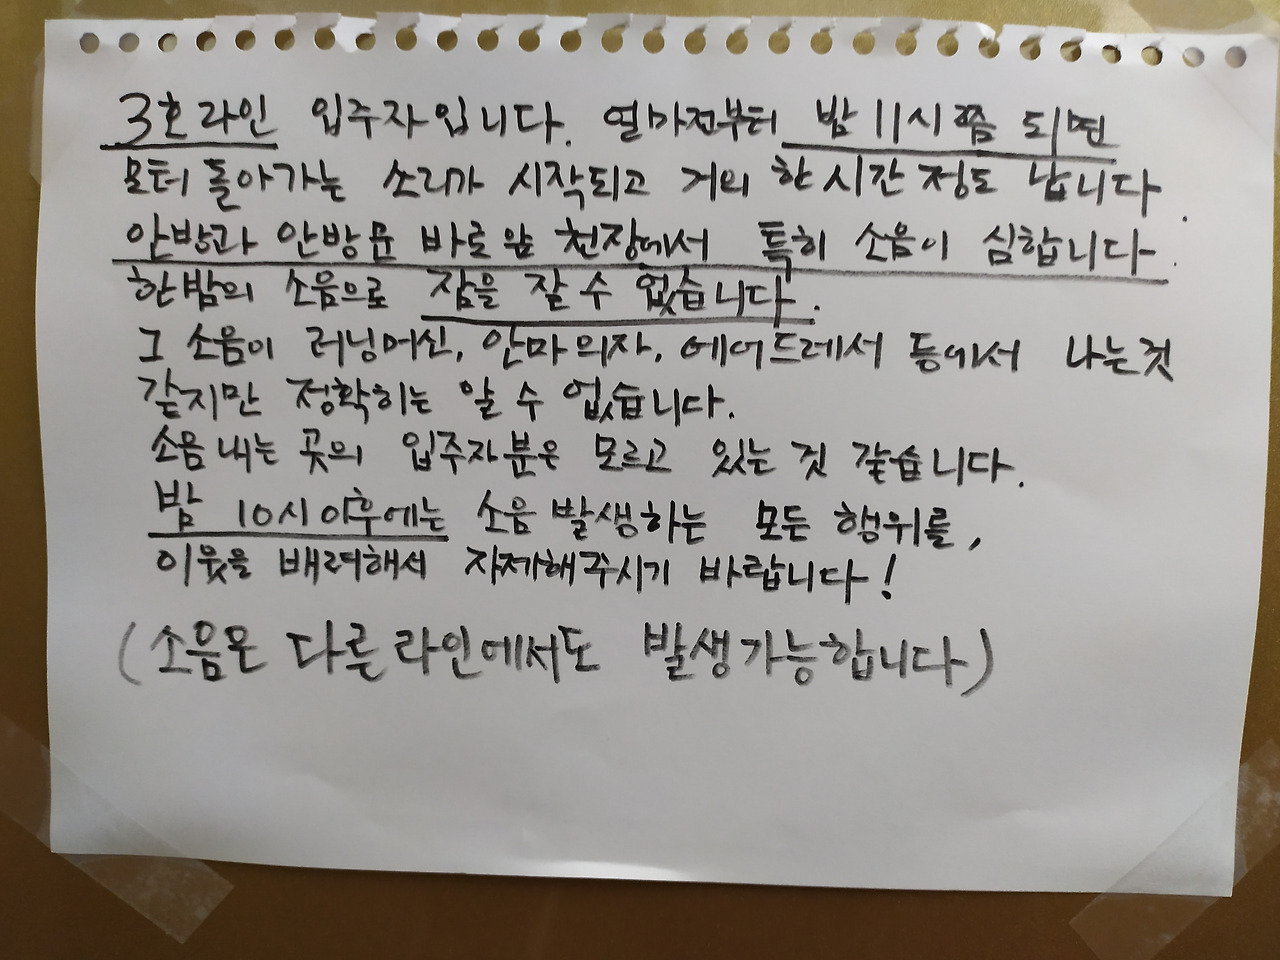 3호라인 입주자입니다. 얼마전부터 밤 11시쯤 되면
모터 돌아가는 소리가 시작되고 거의 한시간 정도 납니다.
안방과 안방문 바로앞 천장에서 특히 소음이 심합니다.
한밤의 소음으로 잠을 잘 수 없습니다.
그 소음이 러닝머신, 안마의자, 에어드레서 등에서 나는것
같지만 정확히는 알 수 없습니다.
소음 내는 곳의 입주자분은 모르고 있는 것 같습니다.
밤 10시이후에는 소음 발생하는 모든 행위를,
이웃을 배려해서 자제해주시기 바랍니다!
(소음은 다른라인에서도 발생가능합니다)